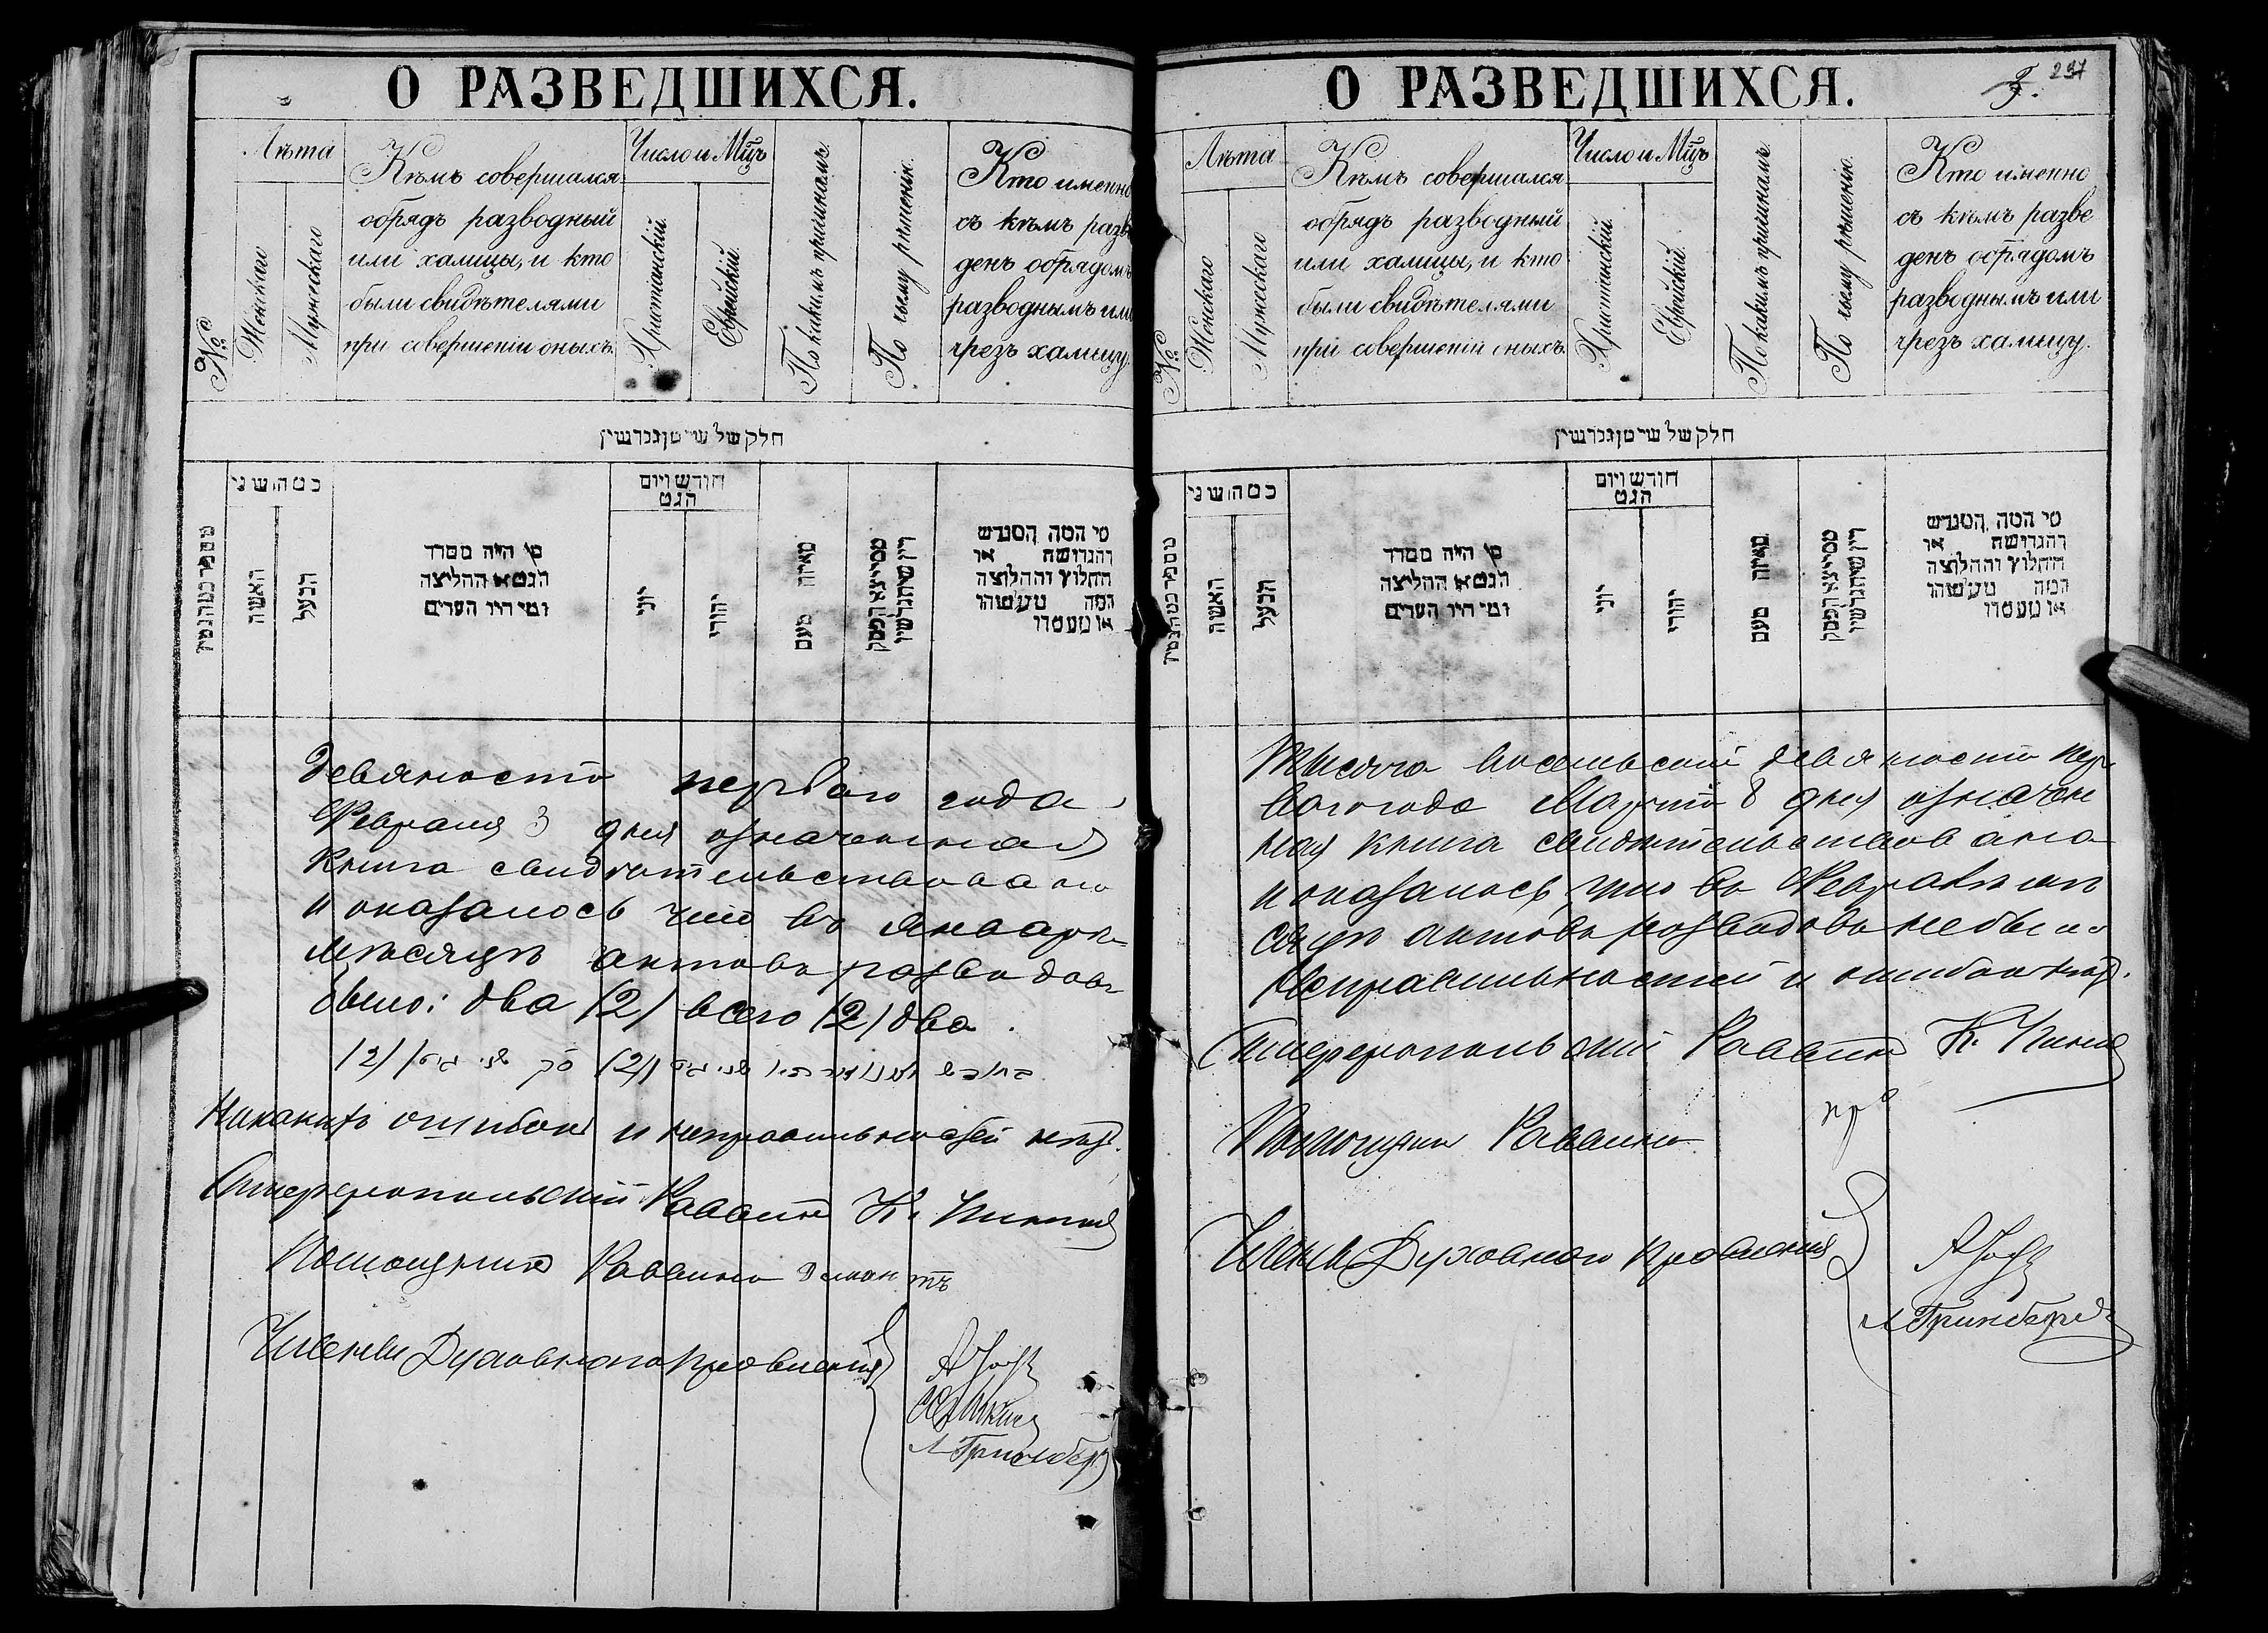 О РАЗВЕДШИХСЯ.
№
Лѣта
Женскаго
Мужескаго
Кѣмъ совершался
обрядъ разводный
или халицы, и кто
были свидѣтелями
при совершеніи оныхъ.
Число и Мцъ
Христіанскій.
Еврейскій.
По какимъ причинамъ.
По чьему рѣшенію.
Кто именно
съ кѣмъ разве
денъ обрядомъ
разводнымъ или
чрезъ халицу.
חלק של
כמה שני
האשה
הבעל
מי היה מסדר
הגט או החליצה
ומי היו העדים
חודש ויום
הגט
יוני
יהודי
מאיזה טעם
מי המה המגרש
והגרושה או
החלוץ והחלוצה
המה
או
Девяносто перваго года
Февраля 3 дня означенная
книга свидѣтельствована
и оказалось что въ Январѣ
мѣсяцѣ актовъ разводовъ
было: два /2/ всего /2/ два.
/2/ סך שני /2/
ошибокъ и неправильностей нѣтъ.
Симферопольскій Раввинъ К.
Помощникъ Раввина
Члены Духовнаго Правленія
Л Гринберг
О РАЗВЕДШИХСЯ.
237
№
Лѣта
Женскаго
Мужескаго
Кѣмъ совершался
обрядъ разводный
или халицы, и кто
были свидѣтелями
при совершеніи оныхъ.
Число и Мцъ
Христіанскій.
Еврейскій.
По какимъ причинамъ.
По чьему рѣшенію.
Кто именно
съ кѣмъ разве
денъ обрядомъ
разводнымъ или
чрезъ халицу.
חלק של
כמה שני
האשה
הבעל
מי היה מסדר
הגט או החליצה
ומי היו העדים
חודש ויום
הגט
יוני
יהודי
מאיזה טעם
מי המה המגרש
והגרושה או
החלוץ והחלוצה
המה
או
Тысяча восемьсотъ девяносто пер
ваго года Марта 8 дня означен
ная книга свидѣтельствована
и оказалось что въ Февралѣ мѣ
сяцѣ актовъ разводовъ не было
неправильностей и ошибокъ нѣтъ.
Симферопольскій Раввинъ К.
Помощникъ Раввина
Члены Духовнаго Правленія
Л Гринбергъ